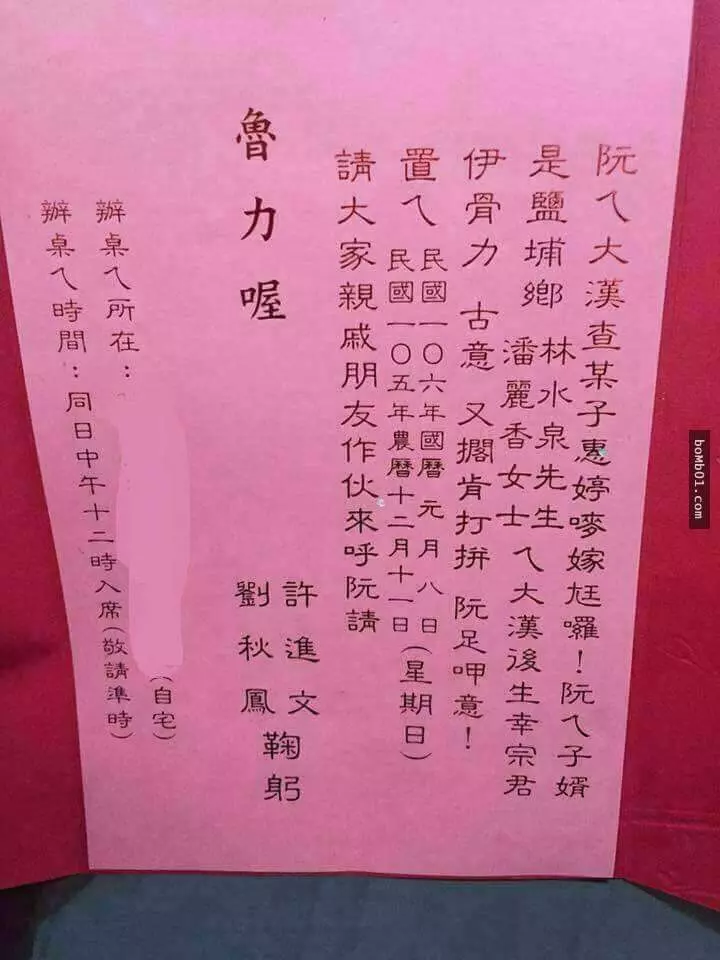 阮ㄟ大漢查某子惠婷嘜嫁尪囉！阮ㄟ子婿
是鹽埔鄉 林水泉先生 潘麗香女士 ㄟ大漢後生幸宗君
伊骨力 古意 又擱肯打拼 阮足呷意！
置ㄟ 民國一〇六年國曆 元月八日 民國一〇五年農曆十二月十一日 (星期日)
請大家親戚朋友作伙來呼阮請
魯力喔
許進文
劉秋鳳
鞠躬
辦桌ㄟ所在：(自宅)
辦桌ㄟ時間：同日中午十二時入席(敬請準時)
boMb01.com